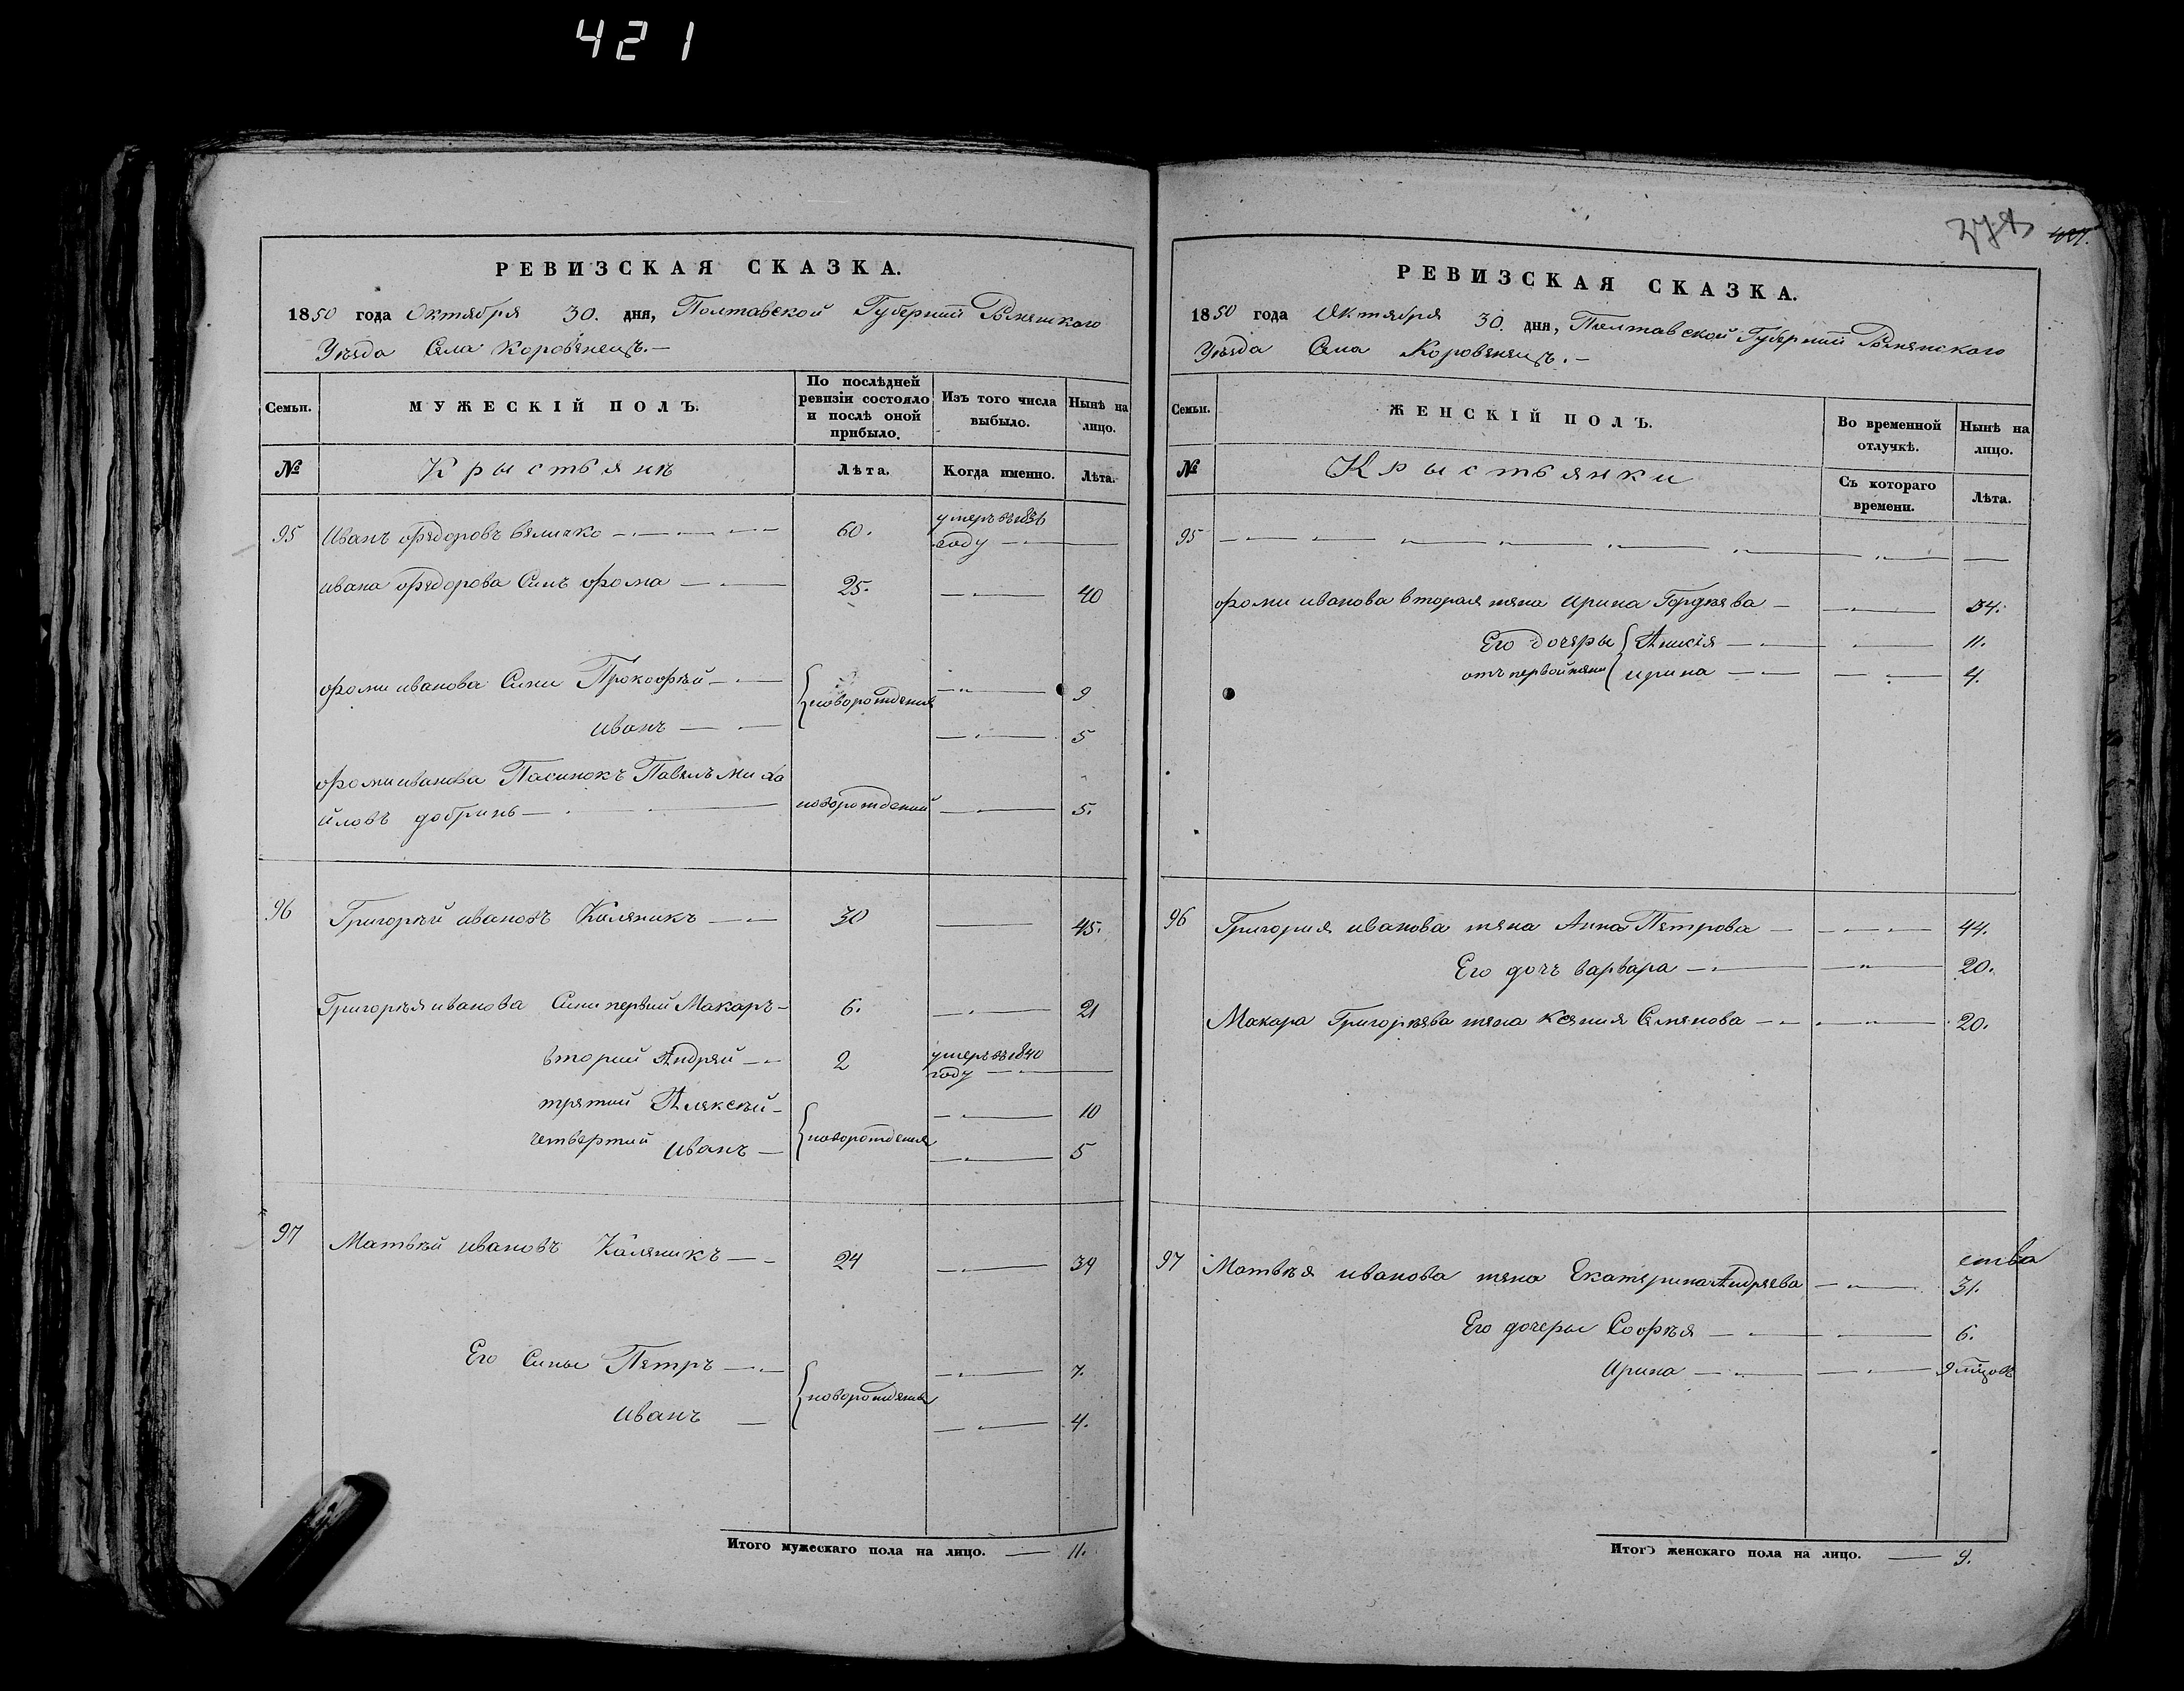 421
РЕВИЗСКАЯ СКАЗКА.
1850 года Октября 30. дня, Полтавской Губерний Роменского
Уезда Села Коровенец.—
Семьи.
МУЖЕСКІЙ ПОЛЪ.
По послѣдней ревизіи состояло и послѣ оной прибыло.
Изъ того числа выбыло.
Нынѣ на лицо.
№
Крыстьянѣ
Лѣта.
Когда именно.
Лѣта.
95 Иванъ Федоровъ Величко 60. умеръ въ 1836 году
ивана Федорова Синъ Фома 25. 40
Фоми иванова Сини Прокофѣй 9
новорожденія
иванъ 5
Фоми иванова Пасинокъ Павелъ Миха
йловъ добринь новорожденій 5.
96 Григорѣй ивановъ Каленикъ 30 45.
Григорѣя иванова Сини первий Макаръ 6. 21
вторий Андрей 2 умеръ въ 1840 году
третий Алексѣй 10
новорожденія
четвертий иванъ 5
97 Матвѣй ивановъ Каленикъ 24 39
Его Сины Петръ 7.
новорожденія
иванъ 4.
Итого мужескаго пола на лицо. 11.
427.
РЕВИЗСКАЯ СКАЗКА.
1850 года Октября 30. дня, Полтавской Губерний Роменского
Уезда Села Коровенец.—
Семьи.
ЖЕНСКІЙ ПОЛЪ.
Во временной отлучкѣ.
Нынѣ на лицо.
№
Крыстьянки
Съ котораго времени.
Лѣта.
95
Фоми иванова вторая жена ирина Гордѣева 34.
Его дочеры Анисія 11.
отъ первой жени ирина 4.
96 Григория иванова жена Анна Петрова 44.
Его дочъ варвара 20.
Макара Григорѣева жена Ксения Семенова 20.
97 Матвѣя иванова жена Екатерина Андреева 31.
Его дочеры Софѣя 6.
Ирина
Итого женскаго пола на лицо. 9.